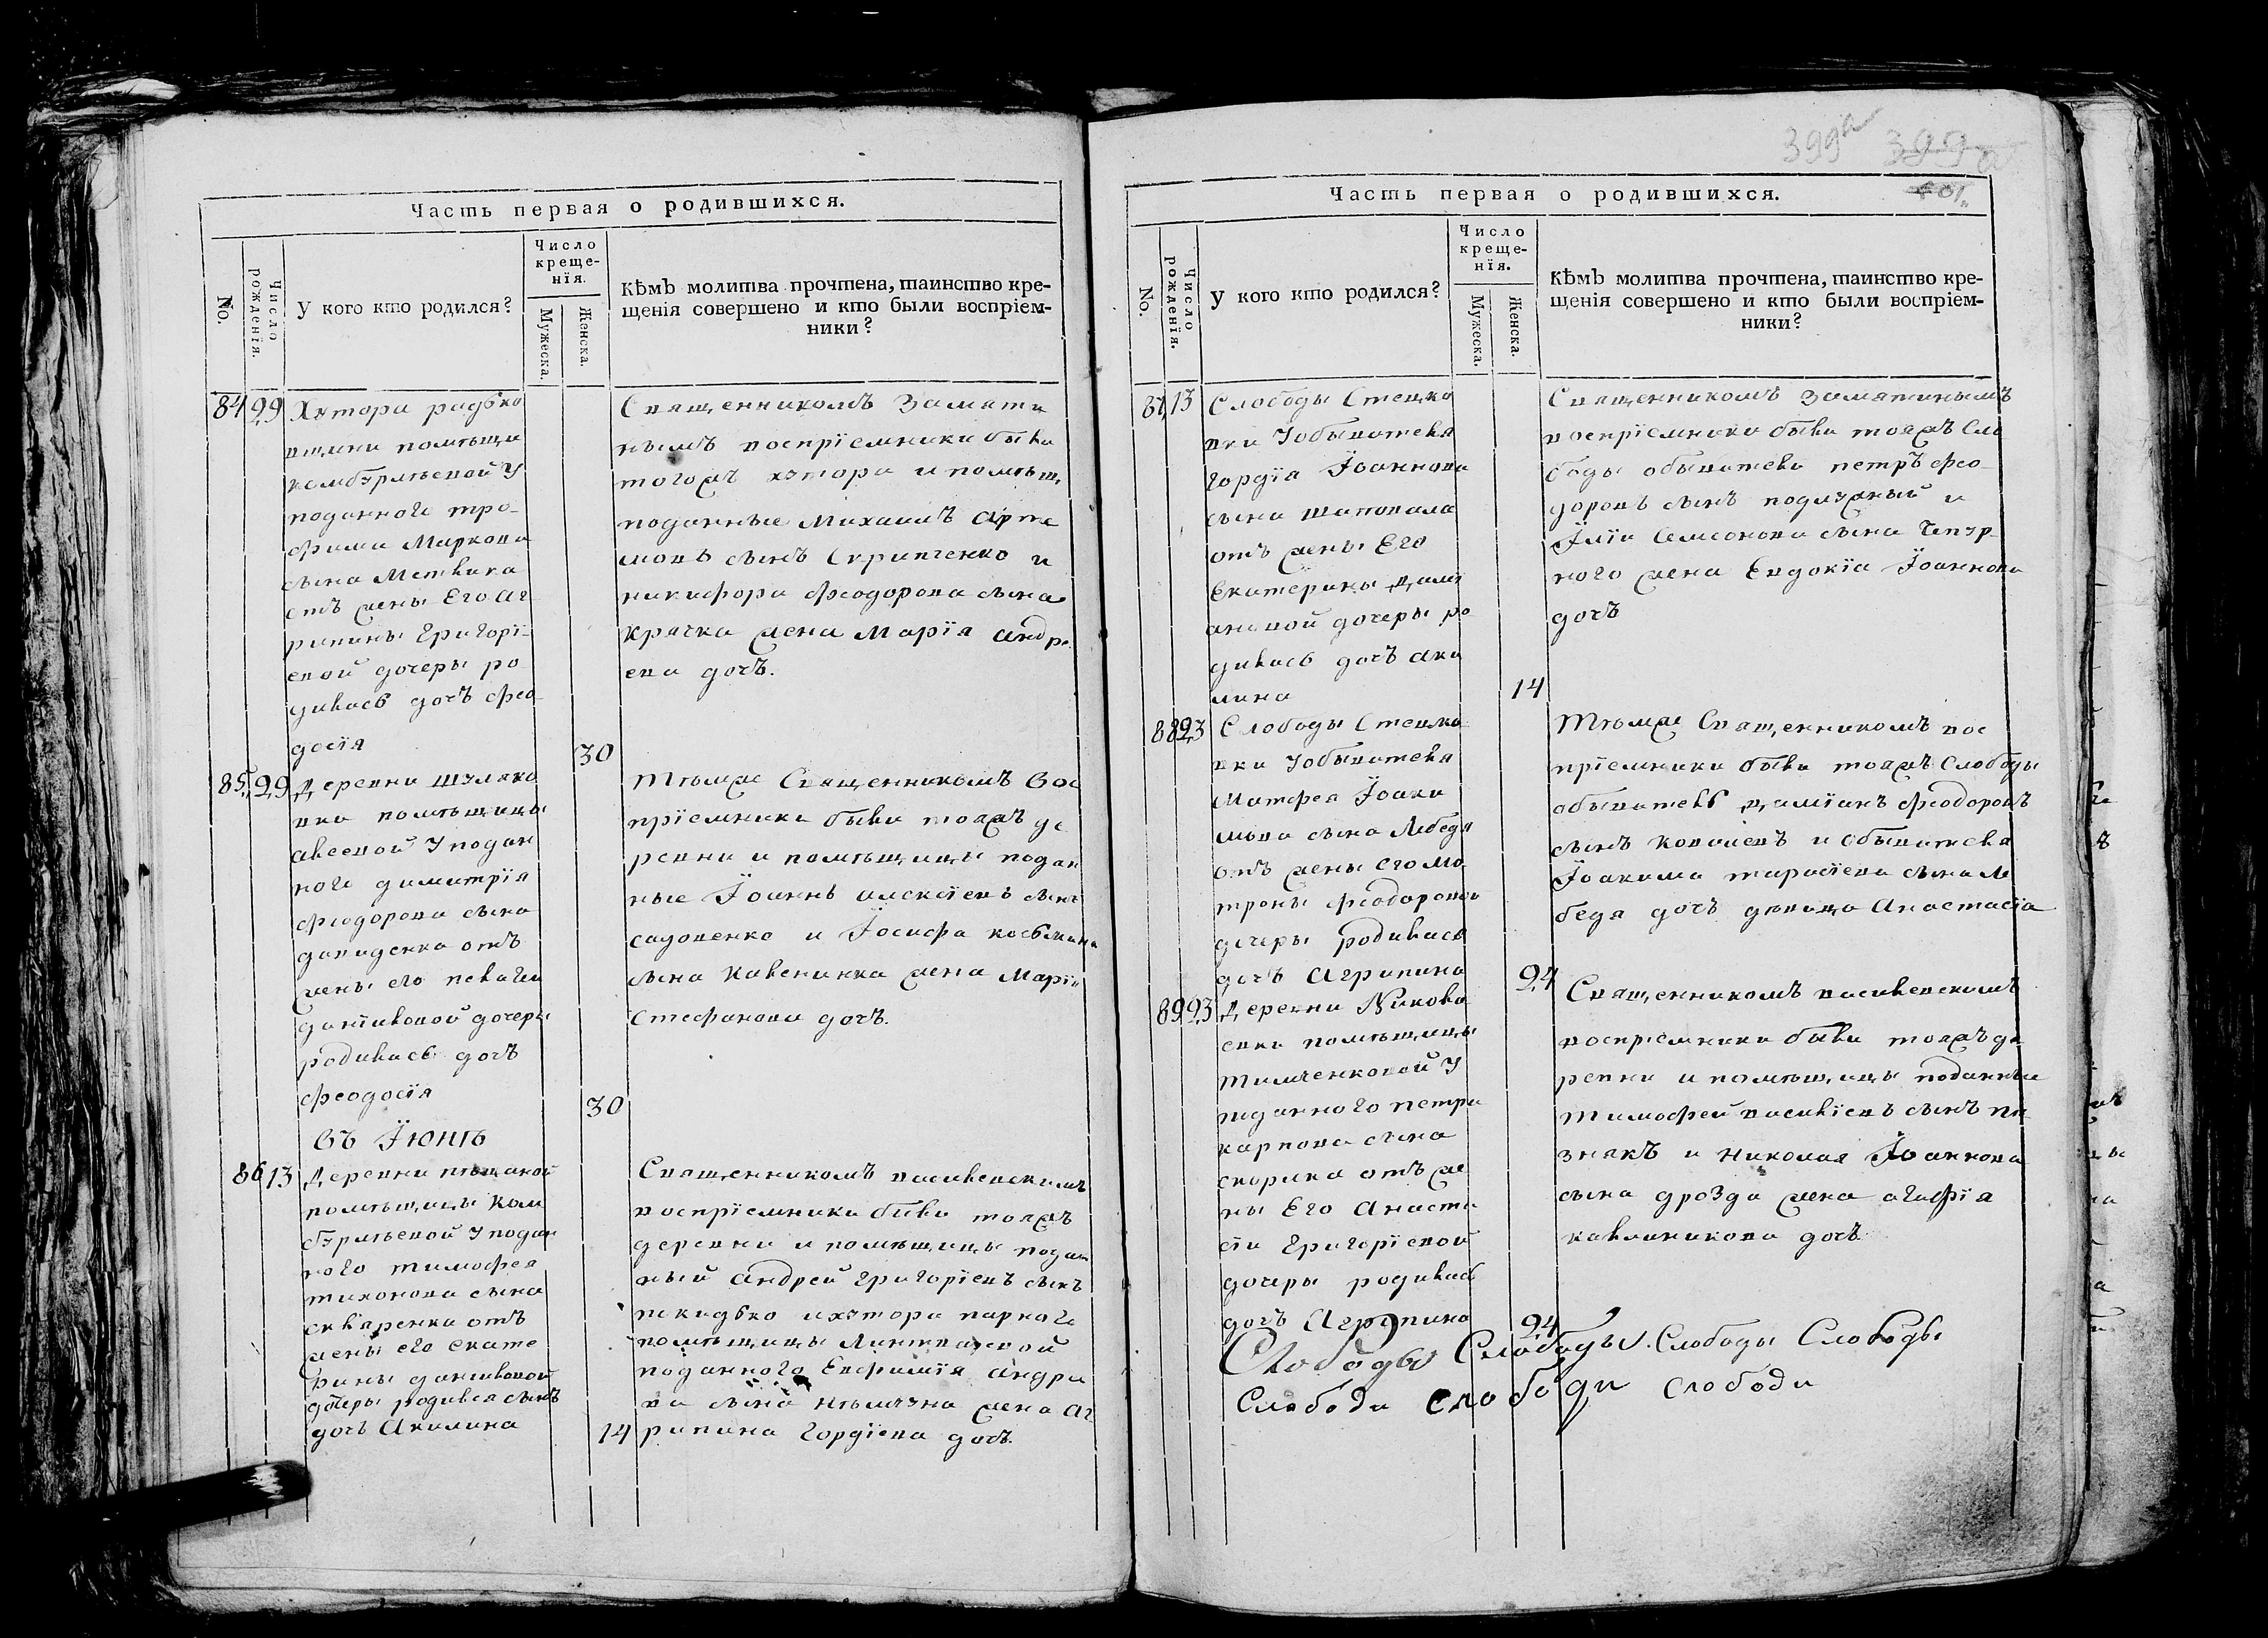 Часть первая о родившихся.
No.
Число рожденїя.
У кого кто родился?
Число крещенїя.
Мужеска.
Женска.
Кѣмъ молитва прочтена, таинство кре-
щенїя совершено и кто были воспрїем-
ники?
84 29 Хутора радько
вщини помѣщи
камбурлѣевой У
поданного тро-
фима Маркова
сына Метвика
отъ жены Его Аг
рипины Григорї-
евой дочеры ро
дилась дочъ фео
досїя
30
Священникомъ Замяти
нымъ воспрїемники были
тогожъ хутора и помѣщ,
поданные Михаилъ Арте
мовъ сынъ Скрипченко и
никифора феодорова сына
крячка жена Марїя андре
ева дочъ.
85 29 Деревни шуляко
вки помѣщицы
авсевой У подан
ного димитрїя
феодорова сына
давиденка отъ
жены его пелагеи
данїиловой дочеры
родилась дочъ
феодосїя
30
Тѣмже Священникомъ Вос
прїемники были тояжъ де
ревни и помѣщицы подан
ные Їоаннъ алексїевъ сынъ
садовенко и Їосифа косьмина
сына Кавеника жена Марїя
Стефанова дочъ.
Въ Їюнѣ
86 13 Деревни пѣщаной
помѣщицы Кам
бурлѣевой У подан
ного тимофея
тихонова сына
скларенка отъ
жены его екате
рины данииловой
дочеры родился сынъ
дочъ Акилина
14
Священникомъ василевскимъ
воспрїемники были тояжъ
деревни и помѣщицы подан
ный андрей григорїевъ сынъ
пекидько и хутора парного
помѣщицы
поданного Евфимїя андре
ва сына нѣмична жена Аг
рипина гордїева дочъ.
399а 399а
401
Часть первая о родившихся.
No.
Число рожденїя.
У кого кто родился?
Число крещенїя.
Мужеска.
Женска.
Кѣмъ молитва прочтена, таинство кре-
щенїя совершено и кто были воспрїем-
ники?
87 13 Слободы Стецко
вки Уобывателя
гордїя Їоаннова
сына шаповала
отъ жены Его
Екатерины Дамї
ановой дочеры ро
дилась дочъ аки
лина
14
Священникомъ Замятинымъ
воспрїемники были тояжъ Сло
боды обыватели петръ фео
доровъ сынъ подлужный и
Їлїи Семсонова сына Чепур
ного жена Евдокїя Їоаннова
дочъ
88 23 Слободы Стецко
вки Уобывателя
Матфея Їоаки
мова сына Лебедя
отъ жены его Ма
троны феодоровой
дочеры родилась
дочъ Агрипина
24
Тѣмже Священникомъ вос
прїемники были тояжъ Слободы
обыватель дамїанъ феодоровъ
сынъ ковалевъ и обывателя
Їоакима тарасїева сына Ле
бедя дочъ девица Анастасїа
89 23 Деревни Никола
евки помѣщицы
Тимченковой У
поданного петра
карпова сына
скорика отъ же
ны Его Анаста
сїи Григорїевой
дочеры родилась
дочъ Агрипина
24
Священникомъ василевскимъ
воспрїемники были тояжъ де
ревни и помѣщицы поданные
тимофей василїевъ сынъ пи
знякъ и николая Їоаннова
сына дрозда жена агафїя
кавлиникова дочъ
Слободы Слободы. Слободы Слободы
Слободи слободи слободи